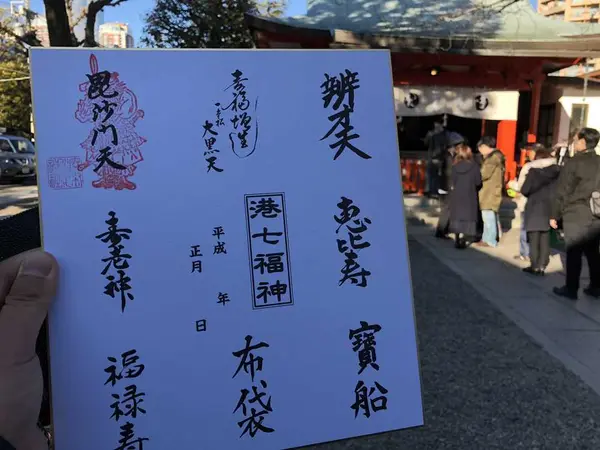 辨才天
恵比寿
寶船
壽福增進
一本松
大黒天
港七福神
平成 年
正月 日
布袋
毘沙門天
寿老神
福禄寿